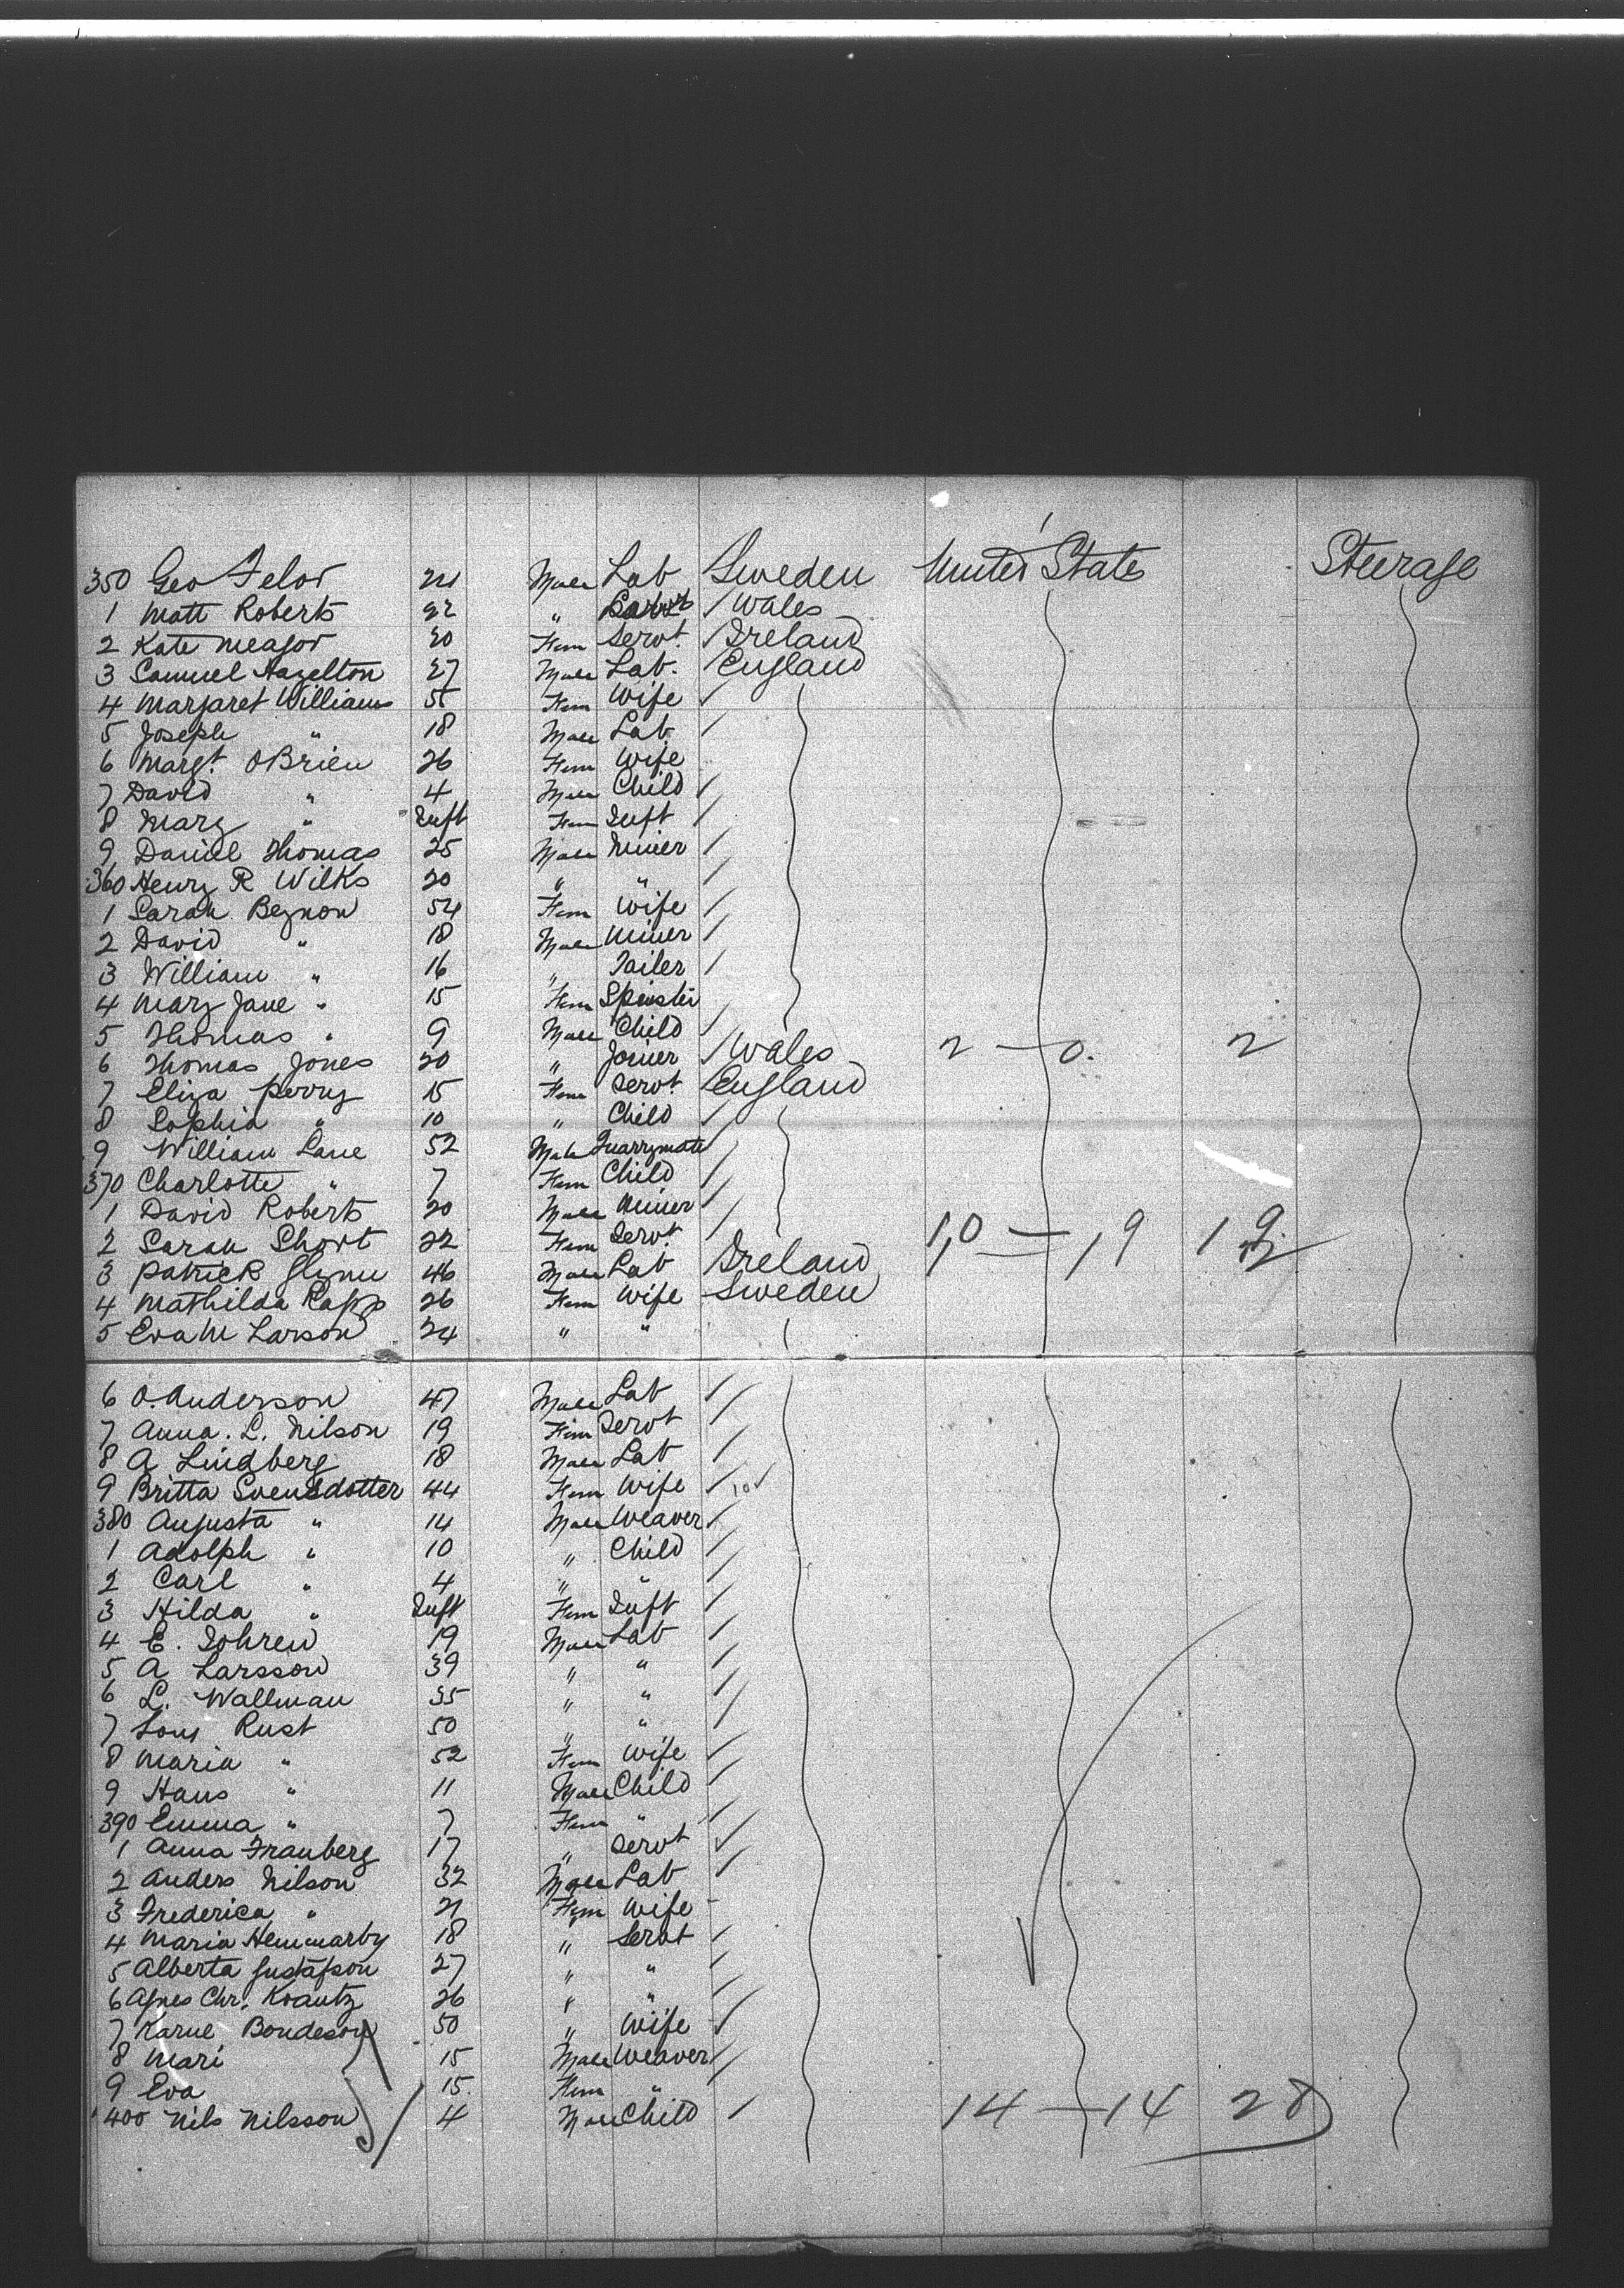 350 Geo Felor 24 Male Lab Sweden United States Steerage
1 Matt Roberts 22 " Wales
2 Kate Meagor 20 Fem Servt. Ireland
3 Samuel Hazelton 27 Male Lab. England
4 Margaret Williams 55 Fem Wife
5 Joseph " 18 Male Lab
6 Margt. OBrien 26 Fem Wife
7 David " 4 Male Child
8 Mary " Inft Fem Inft
9 Daniel Thomas 25 Male Miner
360 Henry R Wilks 20 " "
1 Sarah Beynon 54 Fem Wife
2 David " 18 Male Miner
3 William " 16 " Tailer
4 Mary Jane " 15 Fem Spinster
5 Thomas " 9 Male Child
6 Thomas Jones 20 " Joiner Wales 2 — 0. 2
7 Eliza Perry 15 Fem Servt. England
8 Sophia " 10 " Child
9 William Lane 52 Male Quarrymate
370 Charlotte " 7 Fem Child
1 David Roberts 20 Male Miner
2 Sarah Short 22 Fem Servt. 10 — 9 19
3 Patrick Glynn 46 Male Lab Ireland
4 Mathilda Rapp 26 Fem Wife Sweden
5 Eva M Larson 24 " "
6 O. Anderson 47 Male Lab
7 Anna. L. Nilson 19 Fem Servt
8 A Lindberg 18 Male Lab
9 Britta Svensdotter 44 Fem Wife
380 Augusta " 14 Male Weaver
1 Adolph " 10 " Child
2 Carl " 4 " "
3 Hilda " Inft Fem Inft
4 E. Johren 19 Male Lab
5 A Larsson 39 " "
6 L. Wallman 35 " "
7 Rust 50 " "
8 Maria " 52 Fem Wife
9 Hans " 11 Male Child
390 Emma " 7 Fem "
1 Anna Franberg 17 " Servt
2 Anders Nilson 32 Male Lab
3 Frederica " 21 Fem Wife
4 Maria Hemmarby 18 " Servt
5 Alberta Gustafson 27 " "
6 Agnes Chr. Krantz 26 " "
7 Karne Bondeson 50 " Wife
8 Mari 15 Male Weaver
9 Eva 15. Fem "
400 Nils Nilsson 4 Male Child 14 — 14 28